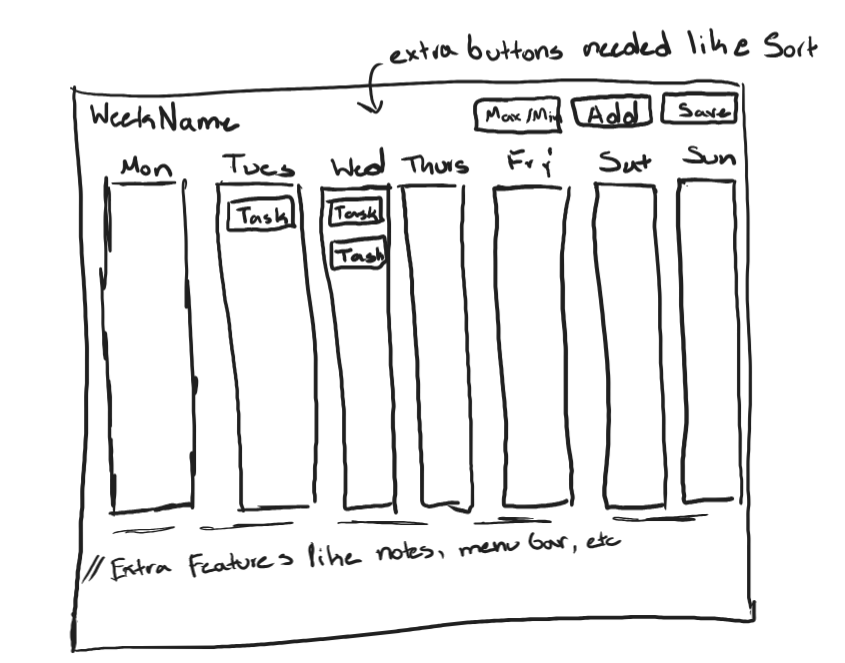 extra buttons needed like Sort
WeekName Max/Min Add Save
Mon Tues Wed Thurs Fri Sat Sun
Task Task
Task
// Extra Features like notes, menu bar, etc